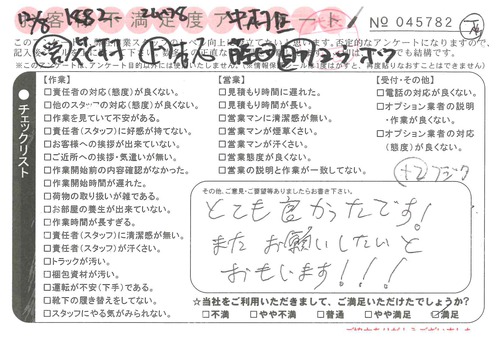 お客様満足度アンケート
№ 045782
チェックリスト
【作業】
□責任者の対応(態度)が良くない。
□他のスタッフの対応(態度)が良くない。
□作業を見ていて不安がある。
□責任者(スタッフ)に好感が持てない。
□お客様への挨拶が出来ていない。
□ご近所への挨拶・気遣いが無い。
□作業開始前の内容確認がなかった。
□作業開始時間が遅れた。
□荷物の取り扱いが雑である。
□お部屋の養生が出来ていない。
□作業時間が長すぎる。
□責任者(スタッフ)に清潔感が無い。
□責任者(スタッフ)が汗くさい。
□トラックが汚い。
□梱包資材が汚い。
□運転が安だ(下手)である。
□靴下の履き替えをしてない。
□スタッフにやる気がみられない。
【営業】
□見積もり時間に遅れた。
□見積もり時間が長い。
□営業マンに清潔感が無い。
□営業マンが煙草くさい。
□営業マンが汗くさい。
□営業態度が良くない。
□営業の説明と作業が一致してない。
【受付・その他】
□電話の対応が良くない。
□オプション業者の説明
・作業が良くない。
□オプション業者の対応
(態度)が良くない。
その他、ご意見・ご要望等ありましたらお書き下さい。
とても良かったです!
またお願いしたいと
おもいます!!!
☆当社をご利用いただきまして、ご満足いただけたでしょうか?
□不満 □やや不満 □普通 □やや満足 ☑満足